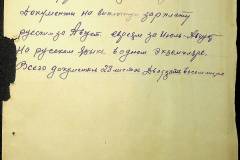 Документы на выплату зарплату
русских за Август. евреям за Июль-Август
на русском языке в одном экземпляре.
Всего документов 28 листов Двадцать восемь листов